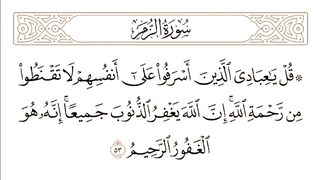 سُورَةُ الزُّمَرِ
۞ قُلْ يَٰعِبَادِىَ ٱلَّذِينَ أَسْرَفُوا۟ عَلَىٰٓ أَنفُسِهِمْ لَا تَقْنَطُوا۟
مِن رَّحْمَةِ ٱللَّهِ ۚ إِنَّ ٱللَّهَ يَغْفِرُ ٱلذُّنُوبَ جَمِيعًا ۚ إِنَّهُۥ هُوَ
ٱلْغَفُورُ ٱلرَّحِيمُ ٥٣